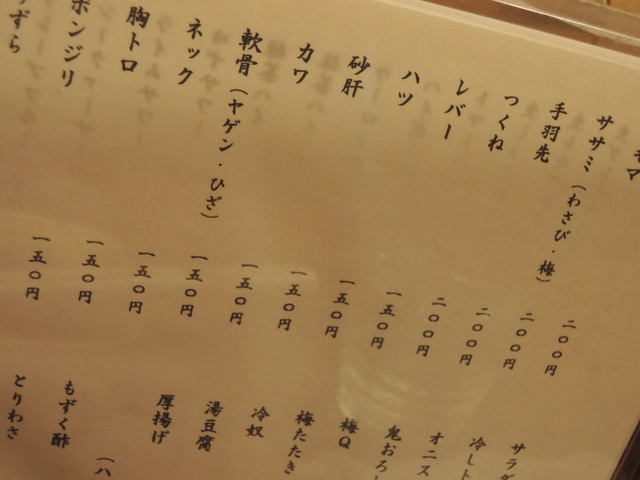 マ 二〇〇円
ササミ（わさび・梅） 二〇〇円
手羽先 二〇〇円
つくね 二〇〇円
レバー 一五〇円
ハツ 一五〇円
砂肝 一五〇円
カワ 一五〇円
軟骨（ヤゲン・ひざ） 一五〇円
ネック 一五〇円
胸トロ 一五〇円
ボンジリ 一五〇円
ずら
サラダ
冷しト
オニス
鬼おろし
梅Q
梅たたき
冷奴
湯豆腐
厚揚げ
（ハ
もずく酢
とりわさ